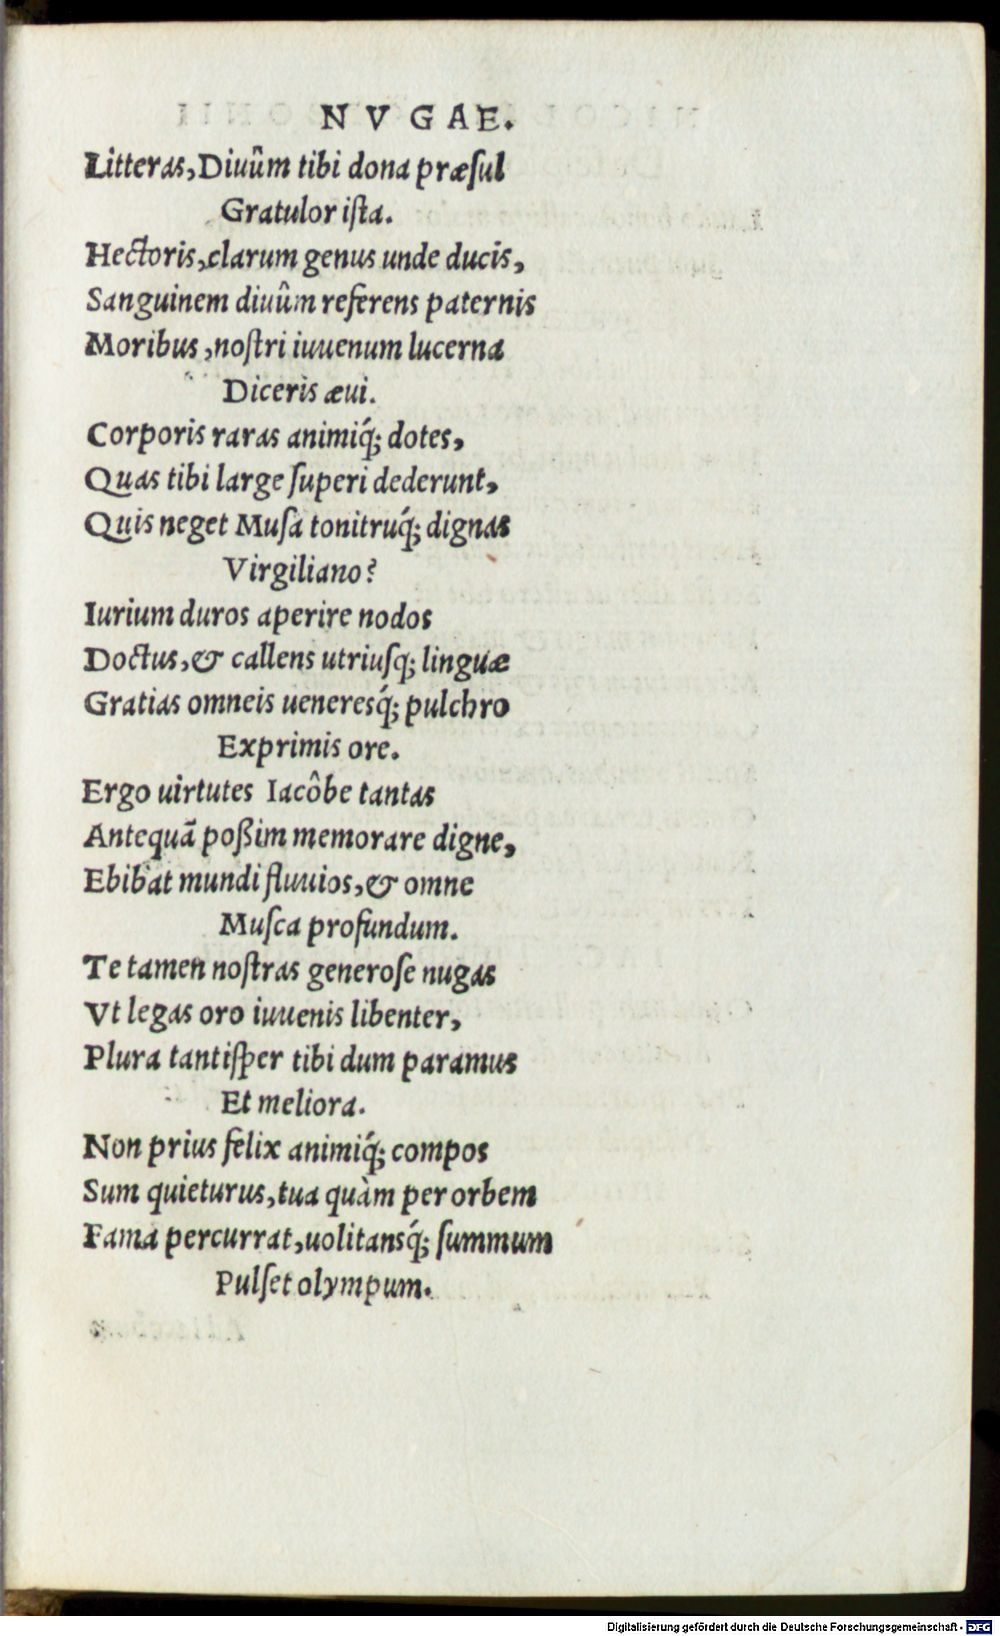 NVGAE.
Litteras, Diuûm tibi dona præſul
Gratulor iſta.
Hectoris, clarum genus unde ducis,
Sanguinem diuûm referens paternis
Moribus, noſtri iuuenum lucerna
Diceris æui.
Corporis raras animiq́; dotes,
Quas tibi large ſuperi dederunt,
Quis neget Muſa tonitruq́; dignas
Virgiliano?
Iurium duros aperire nodos
Doctus, & callens utriuſq; linguæ
Gratias omneis ueneresq́; pulchro
Exprimis ore.
Ergo uirtutes Iacôbe tantas
Antequā poßim memorare digne,
Ebibat mundi fluuios, & omne
Muſca profundum.
Te tamen noſtras generoſe nugas
Vt legas oro iuuenis libenter,
Plura tantiſper tibi dum paramus
Et meliora.
Non prius felix animiq́; compos
Sum quieturus, tua quàm per orbem
Fama percurrat, uolitansq́; ſummum
Pulſet olympum.
Digitalisierung gefördert durch die Deutsche Forschungsgemeinschaft - DFG